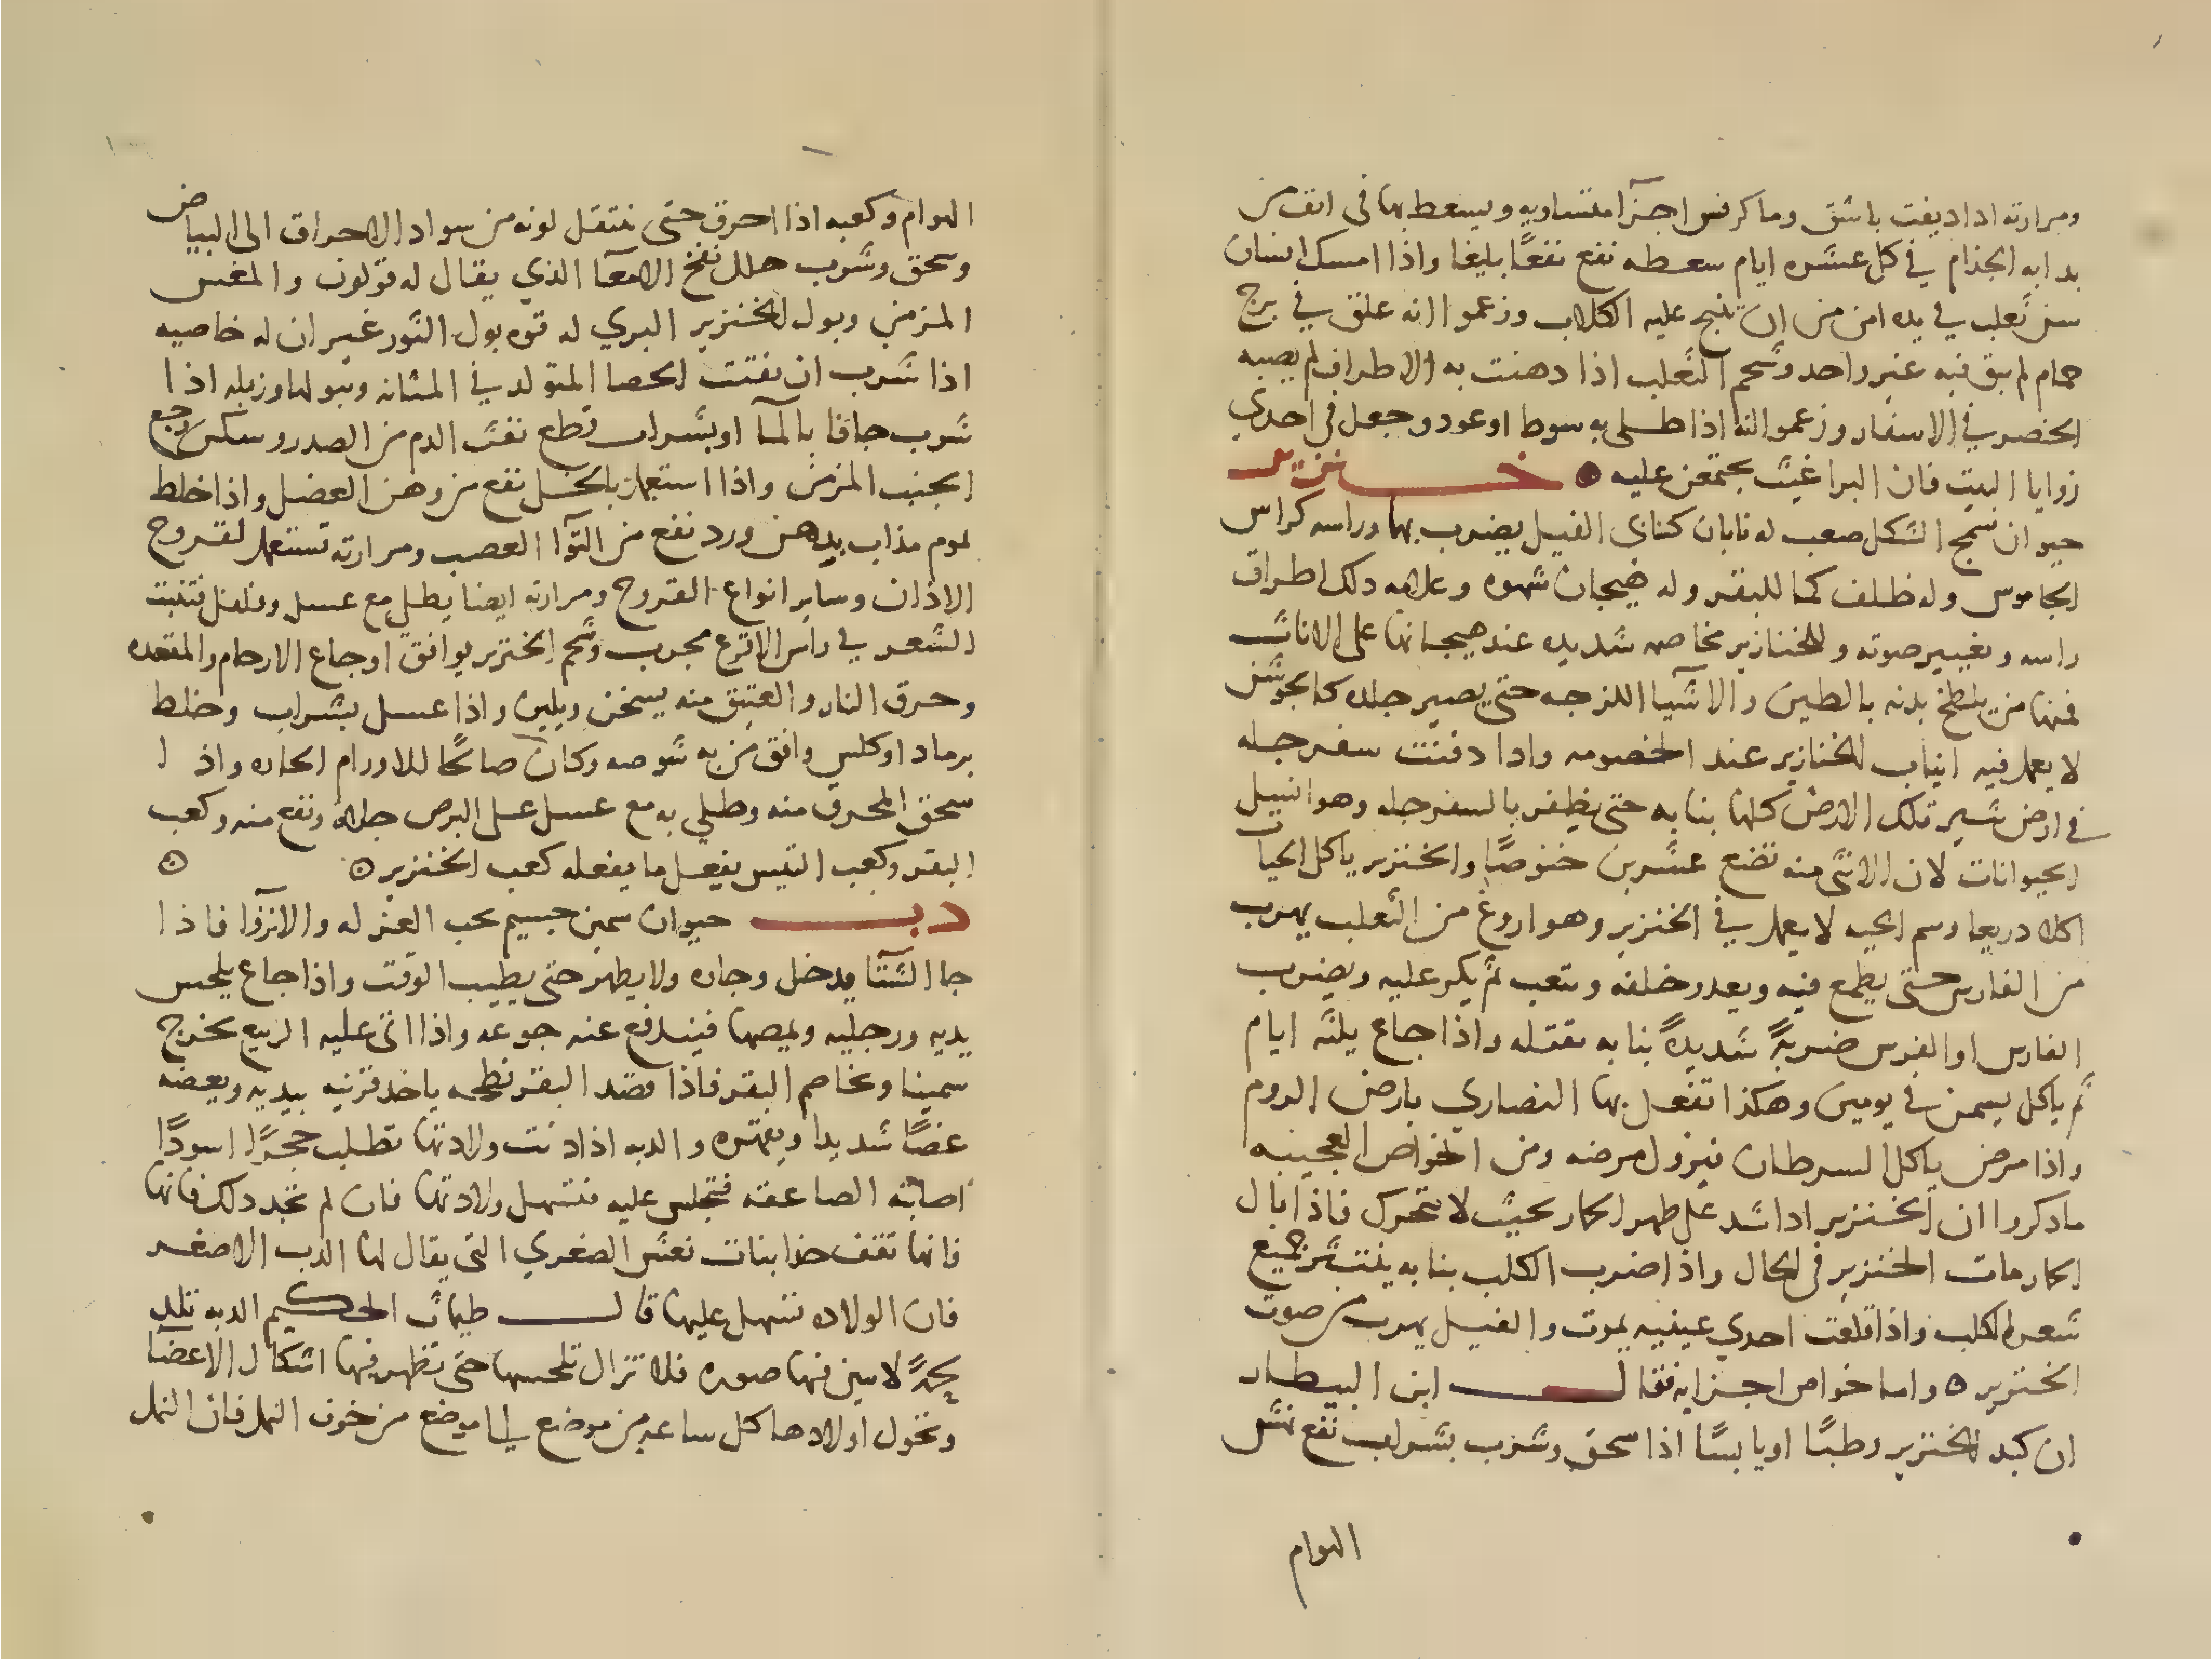 ومرارته اذا ديفت باشق وما كرفس اجزآ متساويه ويسعط بها فى انف من
بدا به الجذام في كل عشره ايام سعطه نفع نفعًا بليغا واذا امسك انسان
سن ثعلب في يده امن من ان تنبح عليه الكلاب وزعموا انه علق في برج
حمام لم يبق فيه غير واحد وشحم الثعلب اذا دهنت به الاطراف لم يصبه
الخصر في الاسفار وزعموا انه اذا طلى به سوط او عود وجعل فى احدي
زوايا البيت فان البراغيث يجتمعن عليه ه خنزير
حيوان سمج الشكل صعب له نابان كنابى الفيل يضرب بهما وراسه كراس
الجاموس وله ظلف كما للبقر وله هيجان شهوه وعلامه ذلك اطراق
راسه وتغيير صوته وللخنازير مخاصمه شديده عند هيجانها على الاناث
فمنها من يلطخ بدنه بالطين والاشيا اللزجه حتى يصير جلده كالجوشن
لا يعمل فيه انياب الخنازير عند الخصومه واذا دفنت سفرجله
في ارض تثير تلك الارض كلها بنابه حتى يظفر بالسفرجله وهو انسل
الحيوانات لان الانثى منه تضع عشرين خنوصًا والخنزير ياكل الحيات
اكلا ذريعا وسم الحيه لا يعمل في الخنزير وهو اروغ من الثعلب يهرب
من الفارس حتى يطمع فيه ويعدو خلفه ويتعب ثم يكر عليه ويضرب
الفارس او الفرس ضربةً شديدةً بنابه يقتله واذا جاع ثلثه ايام
ثم ياكل يسمن في يومين وهكذا تفعل بها النصاري بارض الروم
واذا مرض ياكل السرطان فيزول مرضه ومن الخواص العجيبه
ما ذكروا ان الخنزير اذا شد على ظهر الحمار بحيث لا يتحرك فاذا بال
الحمار مات الخنزير فى الحال واذا ضرب الكلب بنابه ينتثر جميع
شعر الكلب واذا قلعت احدي عينيه يموت والفيل يهرب من صوت
الخنزير ه واما خواص اجزايه فقال ابن البيطار
ان كبد الخنزير رطبًا او يابسًا اذا سحق وشرب بشراب نفع نهش
الهوام
الهوام وكعبه اذا احرق حتى ينتقل لونه من سواد الاحراق الى البياض
وسحق وشرب حلل نفخ الامعآ الذي يقال له قولون والمغس
المزمن وبول الخنزير البري له قوه بول الثور غير ان له خاصيه
اذا شرب ان يفتت الحصا المتولد في المثانه ويبولها وزبله اذا
شرب جافا بالمآ او بشراب قطع نفث الدم من الصدر وسكن وجع
الجنب المزمن واذا استعمل بالخل نفع من وهن العضل واذا خلط
بموم مذاب بدهن ورد نفع من التوآ العصب ومرارته تستعمل لقروح
الاذان وساير انواع القروح ومرارته ايضا يطلى مع عسل وفلفل فتنبت
الشعر في راس الاقرع مجرب وشحم الخنزير يوافق اوجاع الارحام والمقعده
وحرق النار والعتيق منه يسخن ويلين واذا غسل بشراب وخلط
برماد او كلس وافق من به شوصه وكان صالحًا للاورام الحاره واذا
سحق المحرق منه وطلي به مع عسل على البرص جلاه ونفع منه وكعب
البقر وكعب التيس يفعل ما يفعله كعب الخنزير ه ه
دب حيوان سمين جسيم يحب العزله والانزوآ فاذا
جا الشتآ يدخل وجاره ولا يظهر حتى يطيب الوقت واذا جاع يلحس
يديه ورجليه ويمصها فيندفع عنه جوعه واذا اتى عليه الربيع يخرج
سمينا ويخاصم البقر فاذا قصد البقر نطحه ياخذ قرنيه بيديه ويعضه
عضًا شديدا ويقهره والدبه اذا دنت ولادتها تطلب حجرًا اسودًا
اصابته الصاعقه فتجلس عليه فتسهل ولادتها فان لم تجد ذلك فانها
فانها تقف حذا بنات نعش الصغري التى يقال لها الدب الاصغر
فان الولاده تسهل عليها قال طيماث الحكيم الدبه تلد
لا يبين فيها صوره فلا تزال تلحسها حتى تظهر فيها اشكال الاعضآ
وتحول اولادها كل ساعه من موضع الى موضع من خوف النمل فان النمل